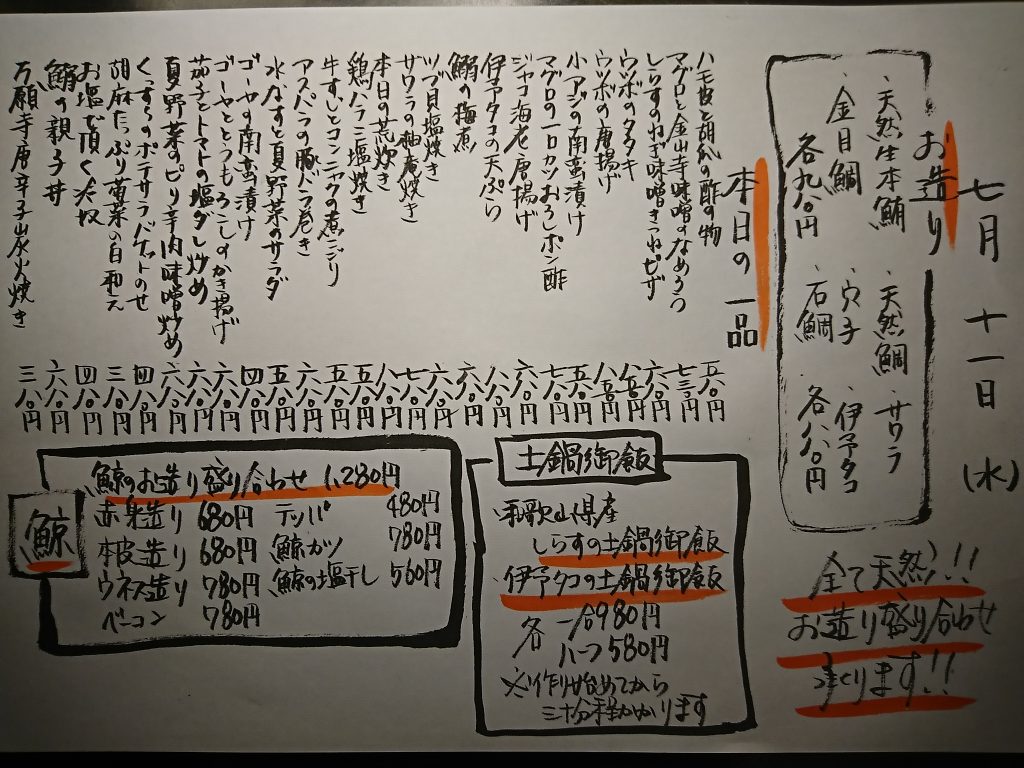 七月十一日(水)
お造り
、天然生本鮪、天然鯛、サワラ
、金目鯛、穴子、伊予タコ
各九八〇円、石鯛各八八〇円
全て天然!!
お造り盛り合わせ
承ります!!
本日の一品
ハモ皮と胡瓜の酢の物 五八〇円
マグロと金山寺味噌のなめろう 七三〇円
しらすのねぎ味噌きつねピザ 六八〇円
ウツボのタタキ 八五〇円
ウツボの唐揚げ 八五〇円
小アジの南蛮漬け 五八〇円
マグロの一口カツおろしポン酢 七八〇円
ジャコ海老唐揚げ 六八〇円
伊予タコの天ぷら 八八〇円
鰯の梅煮 六八〇円
ツブ貝塩焼き 六八〇円
サワラの柚庵焼き 七八〇円
本日の荒炊き 八八〇円
鶏ハラミ塩焼き 五八〇円
牛すじとコンニャクの煮こごり 五八〇円
アスパラの豚バラ巻き 六八〇円
水なすと夏野菜のサラダ 五八〇円
ゴーヤの南蛮漬け 四八〇円
ゴーヤととうもろこしのかき揚げ 六八〇円
茄子とトマトの塩ダレ炒め 六八〇円
夏野菜のピリ辛肉味噌炒め 六八〇円
のポテサラバゲットのせ 四八〇円
胡麻たっぷり菊菜の白和え 三八〇円
お塩で頂く冷奴 四八〇円
鰯の親子丼 六八〇円
万願寺唐辛子焼き 三八〇円
土鍋御飯
・和歌山県産
しらすの土鍋御飯
・伊予タコの土鍋御飯
各 一合980円
ハーフ580円
※作り始めてから
三十分程かかります
鯨
鯨のお造り盛り合わせ 1,280円
赤身造り 680円 テッパ 480円
本皮造り 680円 鯨カツ 780円
ウネス造り 780円 鯨の塩干し 560円
ベーコン 780円